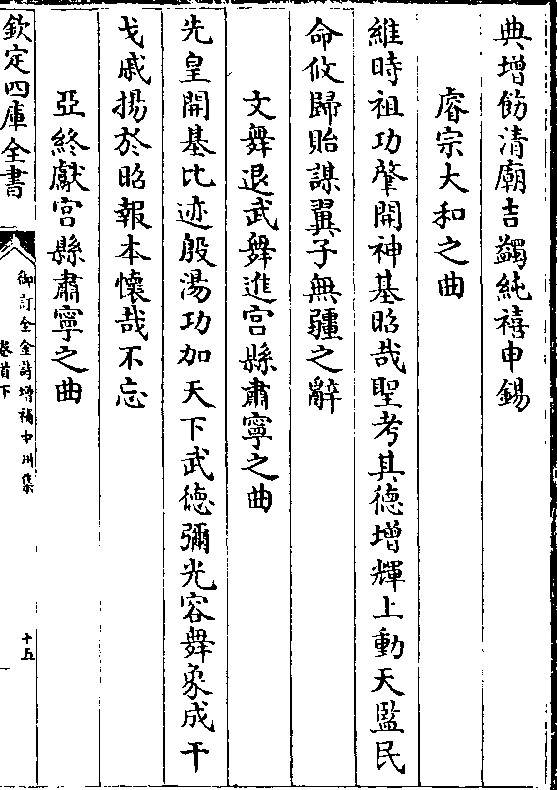 典增飭清廟吉蠲純禧申錫
睿宗大和之曲
維時祖功肇開神基昭哉聖考其德增輝上動天監民
命攸歸貽謀翼子無疆之辭
文舞退武舞進宮縣肅寧之曲
先皇開基比迹殷湯功加天下武德彌光容舞象成干
戈戚揚於昭報本懷哉不忘
亞終獻宮縣肅寧之曲
欽定四庫全書
御訂全金詩增補中州集
卷首下
十五